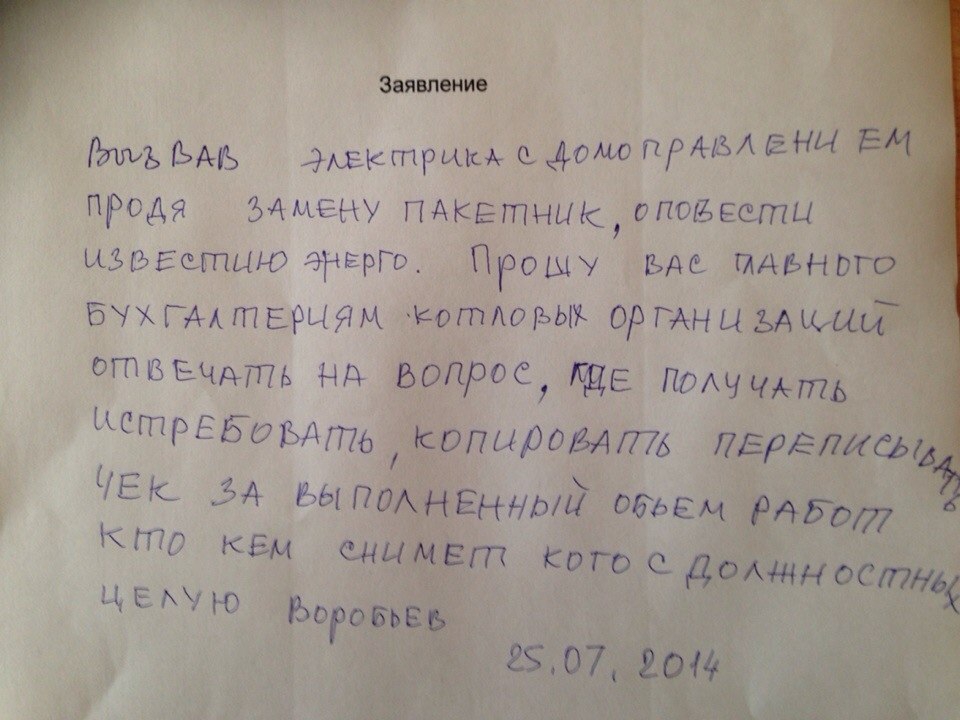 Заявление
ВЫЪВАВ ЭЛЕКТРИКА С ДОМОПРАВЛЕНИЕМ
ПРОДЯ ЗАМЕНУ ПАКЕТНИК, ОПОВЕСТИ
ИЗВЕСТИЮ ЭНЕРГО. ПРОШУ ВАС ГЛАВНОГО
БУХГАЛТЕРИЯМ КОТЛОВЫХ ОРГАНИЗАЦИЙ
ОТВЕЧАТЬ НА ВОПРОС, ГДЕ ПОЛУЧАТЬ
ИСТРЕБОВАТЬ, КОПИРОВАТЬ ПЕРЕПИСЫВАТЬ
ЧЕК ЗА ВЫПОЛНЕННЫЙ ОБЬЕМ РАБОТ
КТО КЕМ СНИМЕТ КОГО С ДОЛЖНОСТНЫХ
ЦЕЛУЮ ВОРОБЬЕВ
25.07.2014